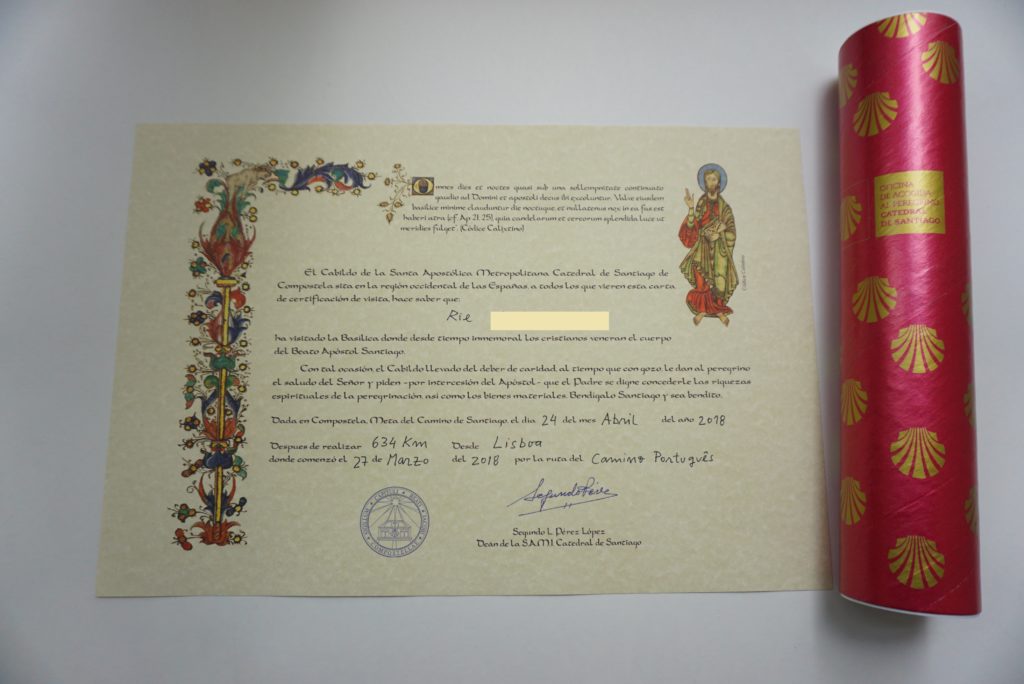 Omnes dies et noctes quasi sub una sollempnitate continuato
gaudio ad Domini et apostoli decus ibi excoluntur. Valve eiusdem
basilice minime clauduntur die noctuque, et nullatenus nox in ea fas est
haberi atra (cf. Ap. 21, 25), quia candelarum et cereorum splendida luce ut
meridies fulget". (Códice Calixtino)
El Cabildo de la Santa Apostólica Metropolitana Catedral de Santiago de
Compostela sita en la región occidental de las Españas, a todos los que vieren esta carta
de certificación de visita, hace saber que:
Rie
ha visitado la Basílica donde desde tiempo inmemoral los cristianos veneran el cuerpo
del Beato Apóstol Santiago.
Con tal ocasión, el Cabildo llevado del deber de caridad, al tiempo que con gozo le dan al peregrino
el saludo del Señor y piden -por intercesión del Apóstol- que el Padre se digne concederle las riquezas
espirituales de la peregrinación, así como los bienes materiales. Bendígalo Santiago y sea bendito.
Dada en Compostela, Meta del Camino de Santiago, el día 24 del mes Abril del año 2018
Despues de realizar 634 Km Desde Lisboa
donde comenzó el 27 de Marzo del 2018 por la ruta del Camino Portugûes
Segundo L. Pérez López
Deán de la S.A.M.I. Catedral de Santiago
OFICINA
DE ACOGIDA
AL PEREGRINO
CATEDRAL
DE SANTIAGO